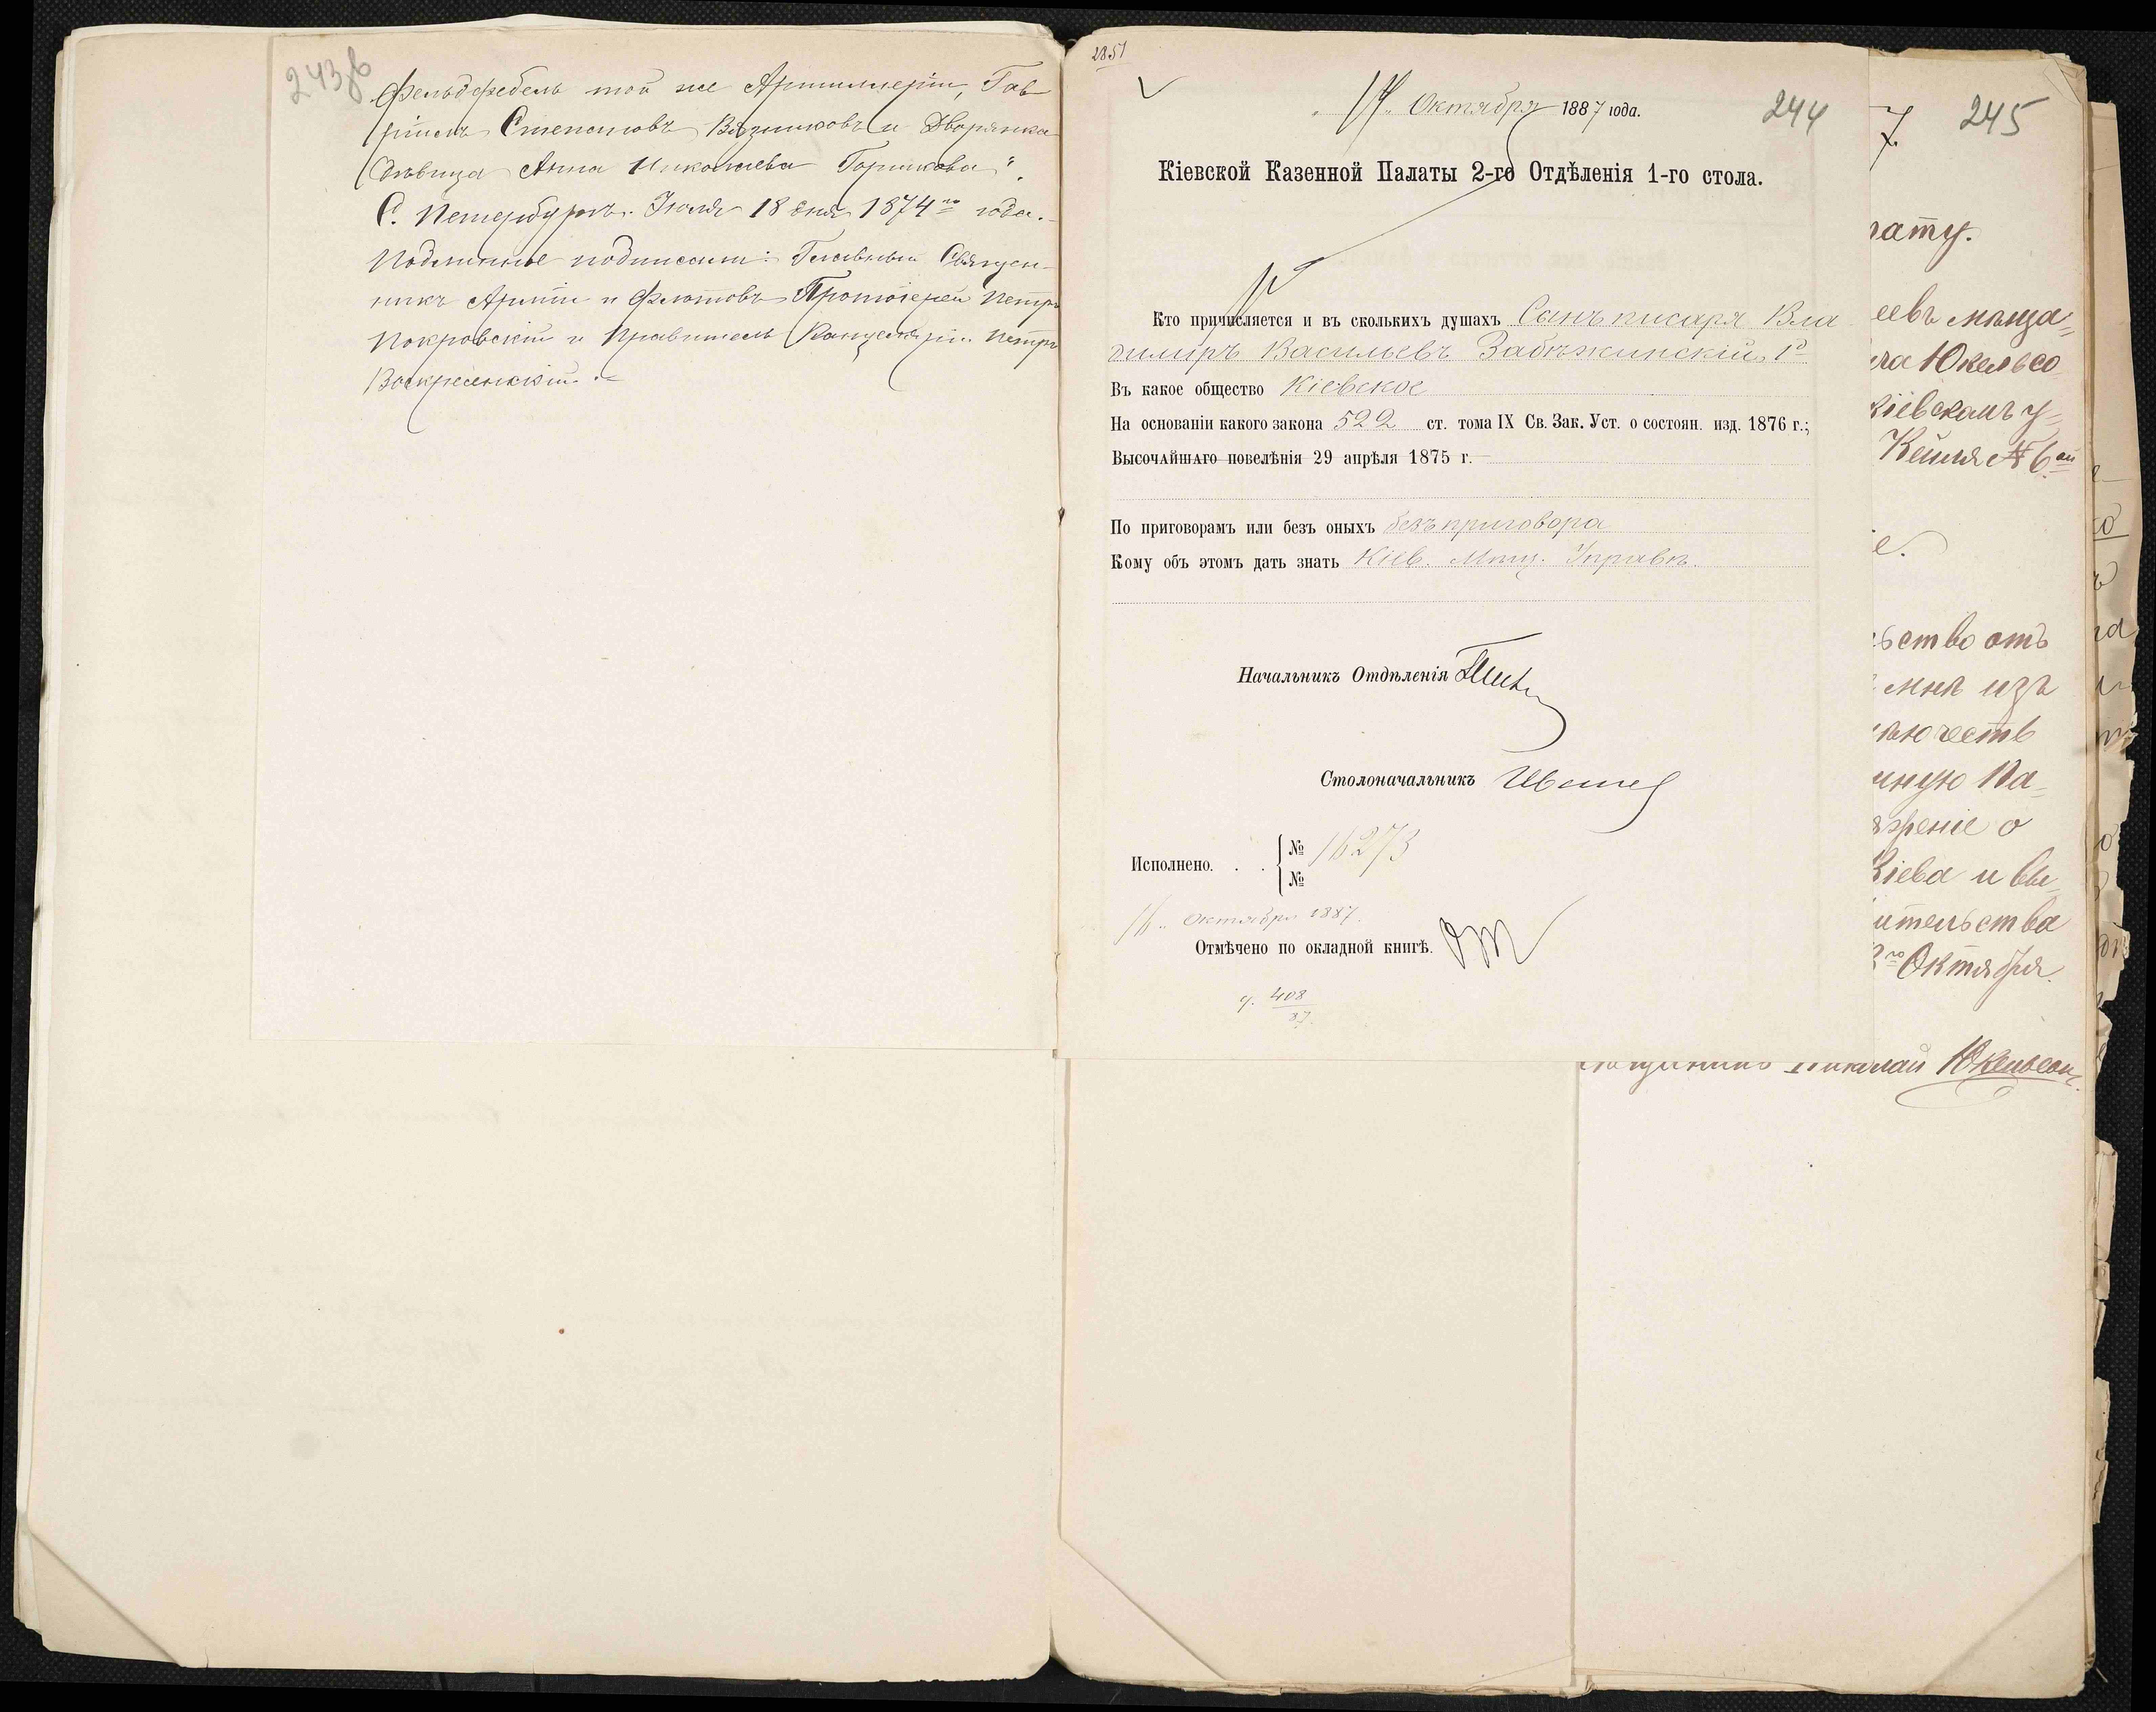 243об
Фельдфебель той же Артиллеріи, Гав
ріилъ Степановъ Вязниковъ и Дворянка
Дѣвица Анна Николаева Горшкова".
С. Петербургъ. Іюля 18 дня 1874го года.
Подлинное подписали: Главный Священ-
никъ Арміи и Флотовъ Протоіерей Петръ
Покровскій и Правитель Канцеляріи Петръ
Воскресенскій.
2851
14 Октября 1887 года.
244
Кіевской Казенной Палаты 2-го Отдѣленія 1-го стола.
Кто причисляется и въ сколькихъ душахъ Сынъ писаря Вла
димиръ Васильевъ Забѣжинскій, 1 д
Въ какое общество Кіевское
На основаніи какого закона 522 ст. тома IX Св. Зак. Уст. о состоян. изд. 1876 г.;
Высочайшаго повелѣнія 29 апрѣля 1875 г.
По приговорамъ или безъ оныхъ безъ приговора
Кому объ этомъ дать знать Кіев. Мѣщ. Управѣ.
Начальникъ Отдѣленія
Столоначальникъ
Исполнено. . . № 16273
№
16 Октября 1887.
Отмѣчено по окладной книгѣ.
ч. 408
87.
245
7.
лату.
еевъ мѣща=
Юкельсо
кіевскомъ у=
Кешия № 6ой
е.
ьство отъ
мнѣ изъ
нную Па=
зрѣніе о
Кіева и вы
ительства
Октября.
Николай Юкельсонъ.